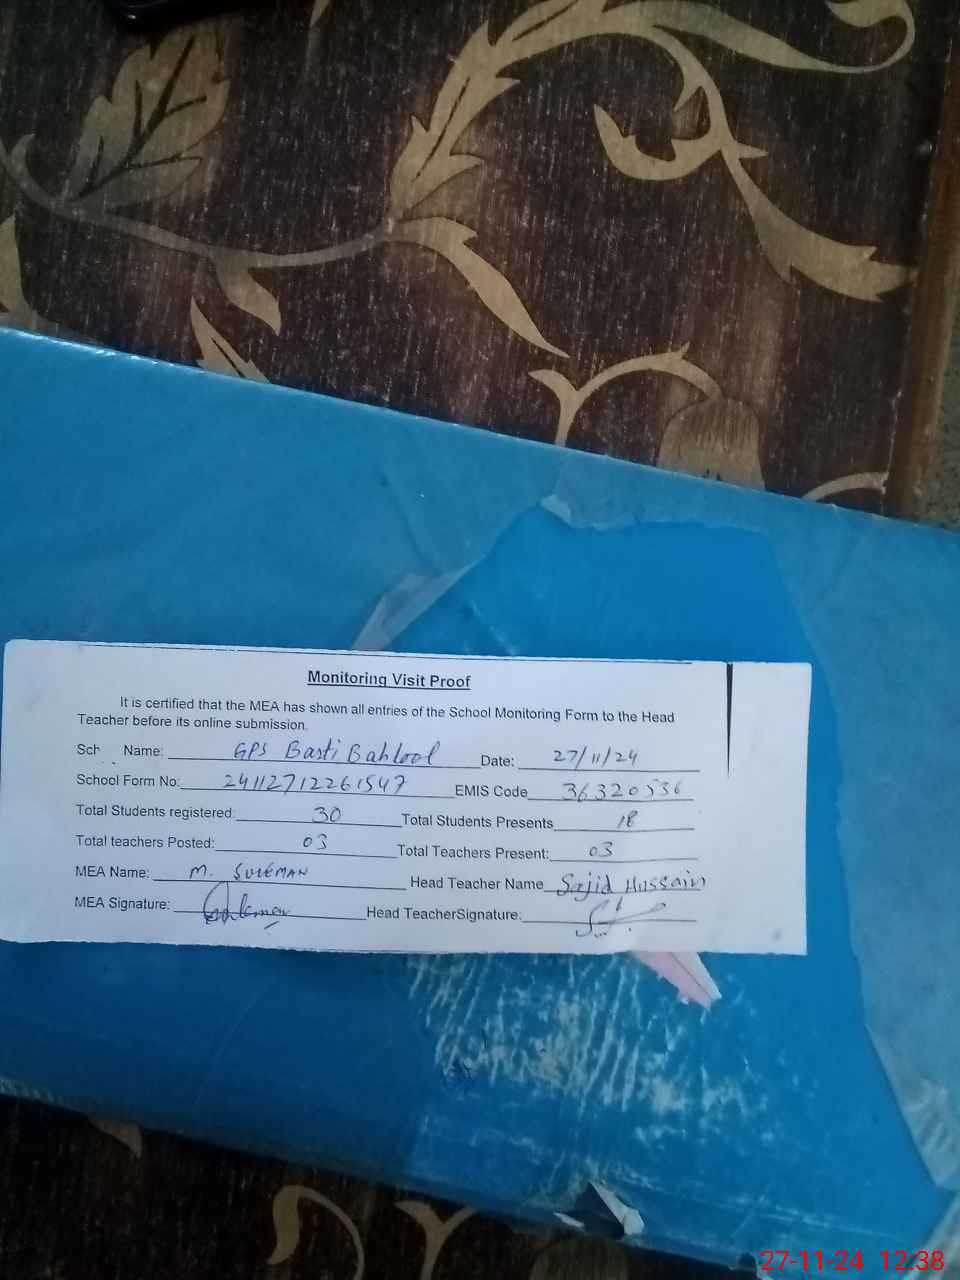 Monitoring Visit Proof
It is certified that the MEA has shown all entries of the School Monitoring Form to the Head
Teacher before its online submission.
Sch Name: GPS Basti Bahlool Date: 27/11/24
School Form No: 24112712261547 EMIS Code 36320536
Total Students registered: 30 Total Students Presents 18
Total teachers Posted: 03 Total Teachers Present: 03
MEA Name: M. SULEMAN Head Teacher Name Sajid Hussain
MEA Signature: Head TeacherSignature:
27-11-24 12.38